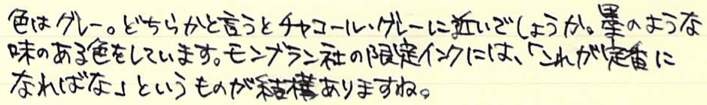 色はグレー。どちらかと言うとチャコール・グレーに近いでしょうか。墨のような
味のある色をしています。モンブラン社の限定インクには、「これが定番に
なればな」というものが結構ありますね。